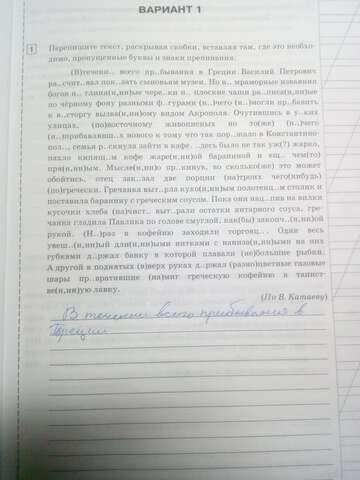 ВАРИАНТ 1
1 Перепишите текст, раскрывая скобки, вставляя там, где это необхо-
димо, пропущенные буквы и знаки препинания.
(В)течени.. всего пр..бывания в Греции Василий Петрович
ра..счит..вал пок..зать сыновьям музеи. Но н.. мраморные изваяния
богов н.. глиня(н,нн)ые чере..ки н.. плоские чаши ра..писа(н,нн)ые
по чёрному фону разными ф..гурами (н..)чего (н..)могли пр..бавить
к в..сторгу вызва(н,нн)ому видом Акрополя. Очутившись в у..ких
улицах, (по)восточному живописных но то(же) (н..)чего
(н..)прибавлявш..х нового к тому что так пор..жало в Константино-
пол.., семья р..скнула зайти в кафе. ..десь было не так уж(?) жарко,
пахло кипящ..м кофе жаре(н,нн)ой бараниной и ещ.. чем(то)
пря(н,нн)ым. Мысле(н,нн)о пр..кинув, во сколько(же) это может
обойтись, отец зак..зал две порции (на)троих чего(нибудь)
(по)гречески. Гречанка выт..рла кухо(н,нн)ым полотенц..м столик и
поставила баранину с греческим соусом. Пока они нац..пив на вилки
кусочки хлеба (на)чист.. выт..рали остатки янтарного соуса, гре-
чанка гладила Павлика по голове смуглой, как(бы) закопч..(н,нн)ой
рукой. (Н..)раз в кофейню заходили торговц.. . Один весь
увеш..(н,нн)ый дли(н,нн)ыми нитками с наниза(н,нн)ыми на них
губками д..ржал банку в которой плавали (не)большие рыбки.
А другой в поднятых (в)верх руках д..ржал (разно)цветные газовые
шары пр..вратившие (на)миг греческую кофейню в таинст-
ве(н,нн)ую лавку.
(По В. Катаеву)
В течении всего прибывания в
Греции